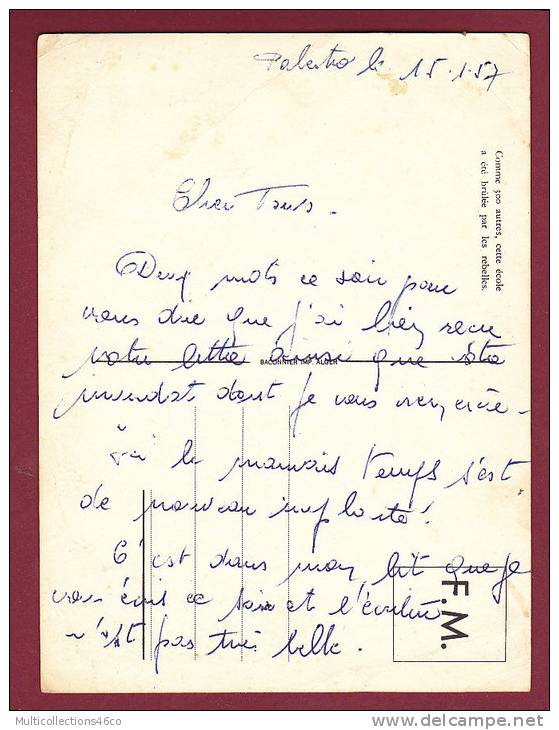 Palestro le 15.1.57
Comme 300 autres, cette école
a été brûlée par les rebelles.
Cher Tous.
Deux mots ce soir pour
vous dire que j'ai bien reçu
votre lettre ainsi que votre
BACONNIER IMP. ALGER
mandat dont je vous remercie.
Ici le mauvais temps s'est
de nouveau implanté.
C'est dans mon lit que je
vous écris ce soir et l'écriture
n'est pas très belle.
F.M.
Multicollections46co
www.delcampe.net